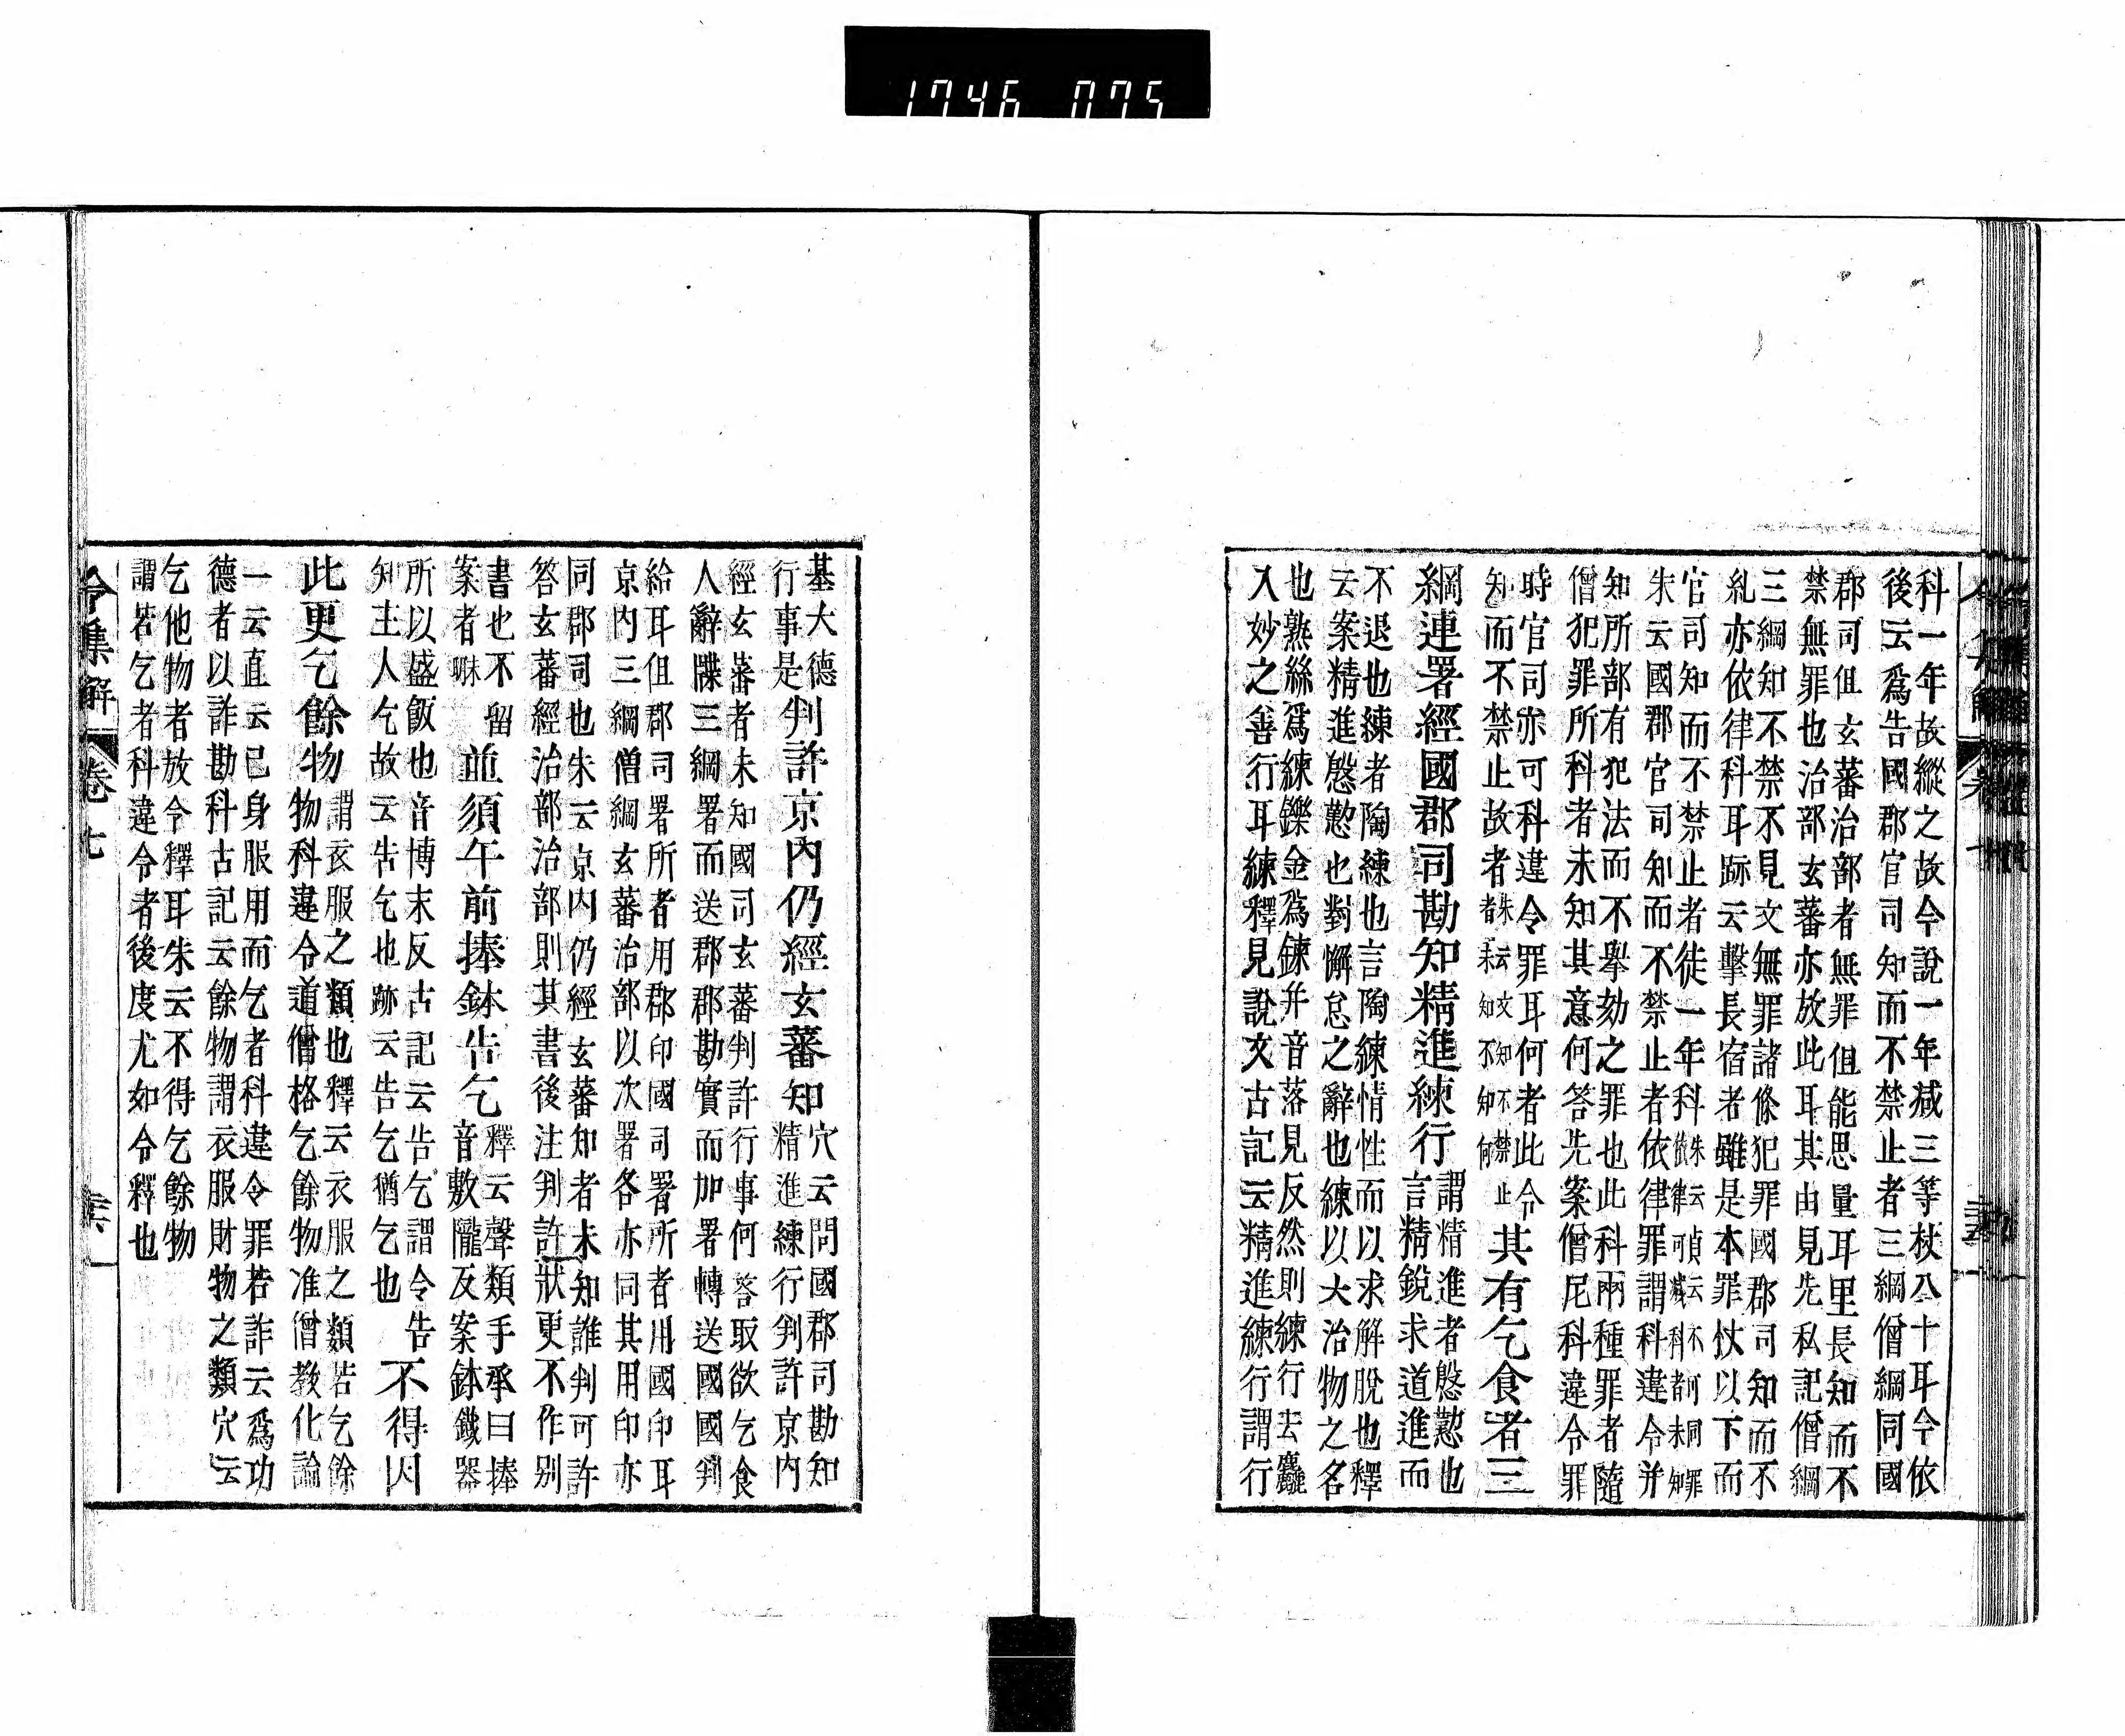 1746 075
科一年故縱之故今說一年减三等杖八十耳今依
後云爲告國郡官司知而不禁止者三綱僧綱同國
郡司但玄蕃治部者無罪但能思量耳里長知而不
禁無罪也治部玄蕃亦放此耳其由見先私記僧綱
三綱知不禁不見文無罪諸條犯罪國郡司知而不
糺亦依律科耳跡云擊長宿者雖是本罪杖以下而
官司知而不禁止者徒一年科朱云貞云不何同罪
依律可减科者未知
朱云國郡官司知而不禁止者依律罪謂科違令并
知所部有犯法而不擧劾之罪也此科兩種罪者隨
僧犯罪所科者未知其意何答先案僧尼科違令罪
時官司亦可科違令罪耳何者此令
知而不禁止故者朱云文知不禁止
者未知不知何
其有乞食者三
綱連署經國郡司勘知精進練行
謂精進者慇懃也
言精銳求道進而
不退也練者陶練也言陶練情性而以求解脫也釋
云案精進慇懃也對懈怠之辭也練以大治物之名
也熟絲爲練鑠金爲鍊幷音落見反然則練行去麤
入妙之善行耳練釋見說文古記云精進練行謂行
基大德
行事是
判許京內仍經玄蕃知
穴云問國郡司勘知
精進練行判許京內
經玄蕃者未知國司玄蕃判許行事何答取欲乞食
人辭牒三綱署而送郡郡勘實而加署轉送國國判
給耳但郡司署所者用郡印國司署所者用國印耳
京內三綱僧綱玄蕃治部以次署各亦同其用印亦
同郡司也朱云京內仍經玄蕃知者未知誰判可許
答玄蕃經治部治部則其書後注判許狀更不作別
書也不留
案者䏃
並須午前捧鉢告乞
釋云聲類手承曰捧
音敷隴反案鉢鐵器
所以盛飯也音博末反古記云告乞謂令告
知主人乞故云告乞也跡云告乞猶乞也
不得因
此更乞餘物
謂衣服之類也釋云衣服之類若乞餘
物科違令道僧格乞餘物准僧教化論
一云直云已身服用而乞者科違令罪若詐云爲功
德者以詐勘科古記云餘物謂衣服財物之類穴云
乞他物者放令釋耳朱云不得乞餘物
謂若乞者科違令者後度尤如令釋也
令集解
卷七